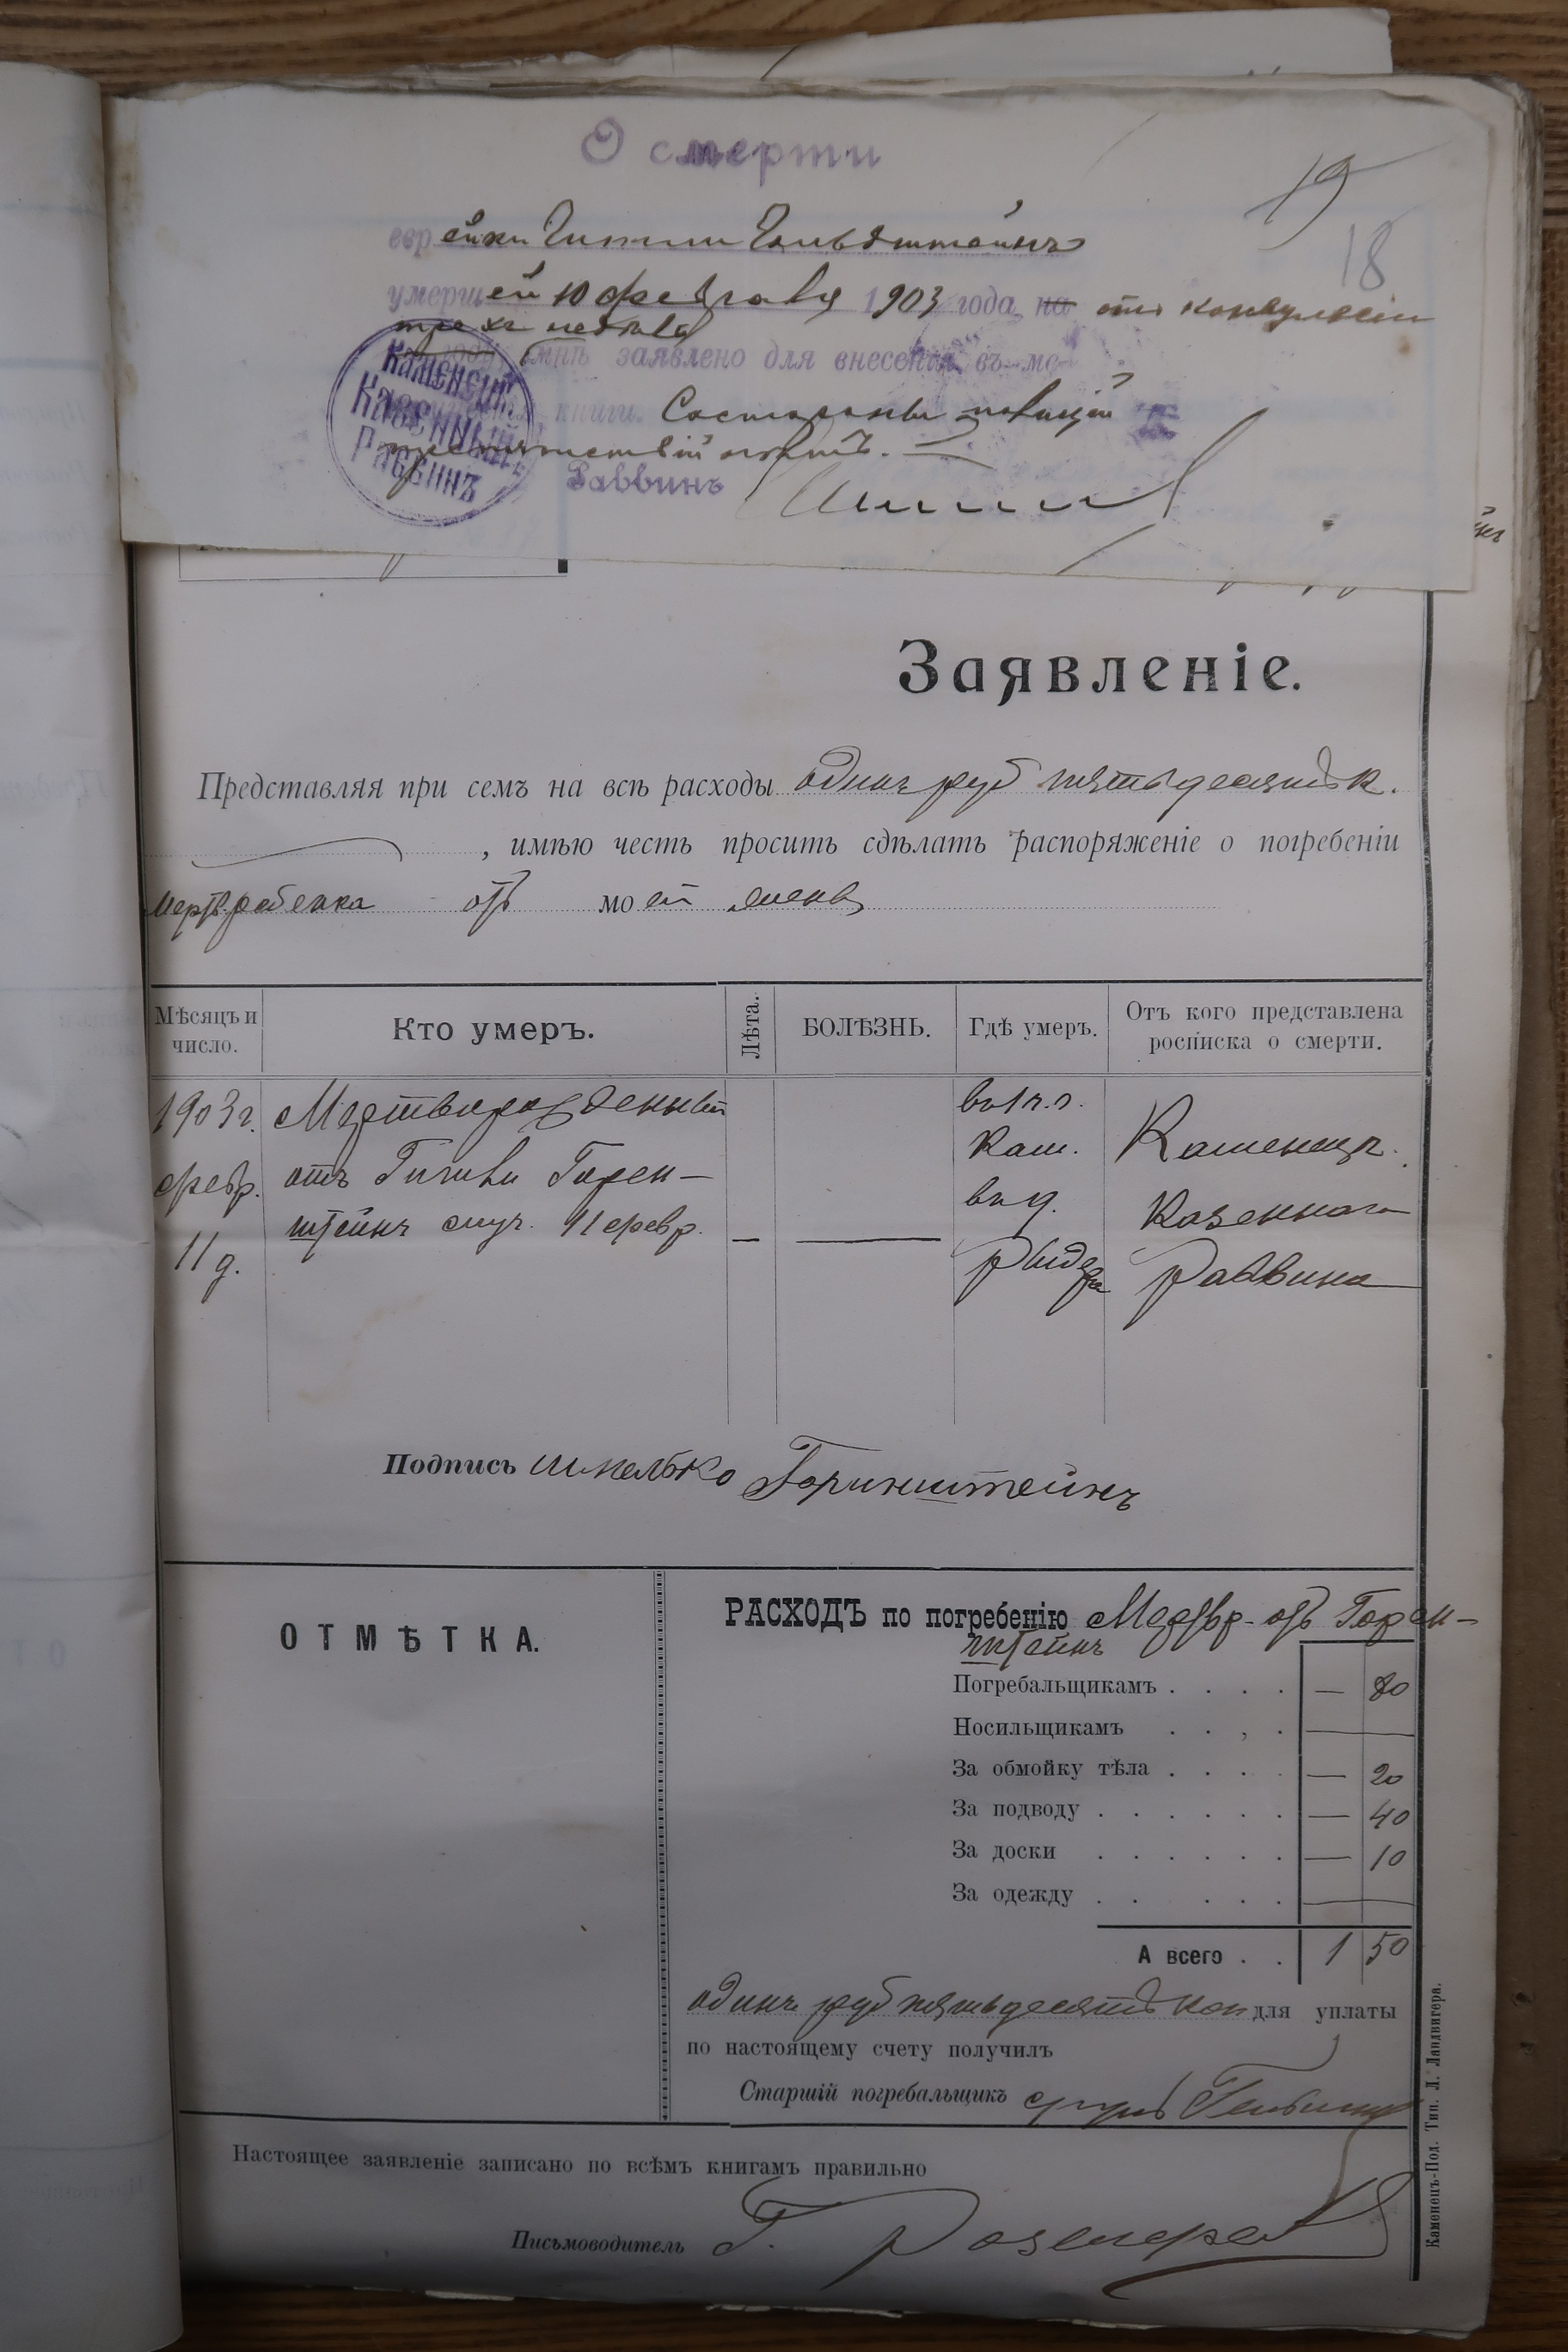 О смерти
19
18
еврейки Гитли Гольдштейнъ
умершей 10 февраля 1903 года, на отъ конвульсіи
трехъ недѣль
мнѣ заявлено для внесенія въ ме-
книги. Со стороны полиціи
препятствій нѣтъ.
Каменецк.
Казенный
Раввинъ
Раввинъ
Заявленіе.
Представляя при семъ на всѣ расходы одинъ руб пятьдесятъ к.
, имѣю честь просить сдѣлать распоряженіе о погребеніи
мертв. ребенка отъ моей жены
Мѣсяцъ и число. Кто умеръ. Лѣта. БОЛѢЗНЬ. Гдѣ умеръ. Отъ кого представлена росписка о смерти.
1903 г. Мертворожденный Каменецк.
февр. отъ Гитли Горен- Кам. Казеннаго
11 д. штейнъ 11 февр. — — Раввина
Подпись Шмелько Горинштейнъ
ОТМѢТКА.
РАСХОДЪ по погребенію Мертвр. отъ Горен-
штейнъ
Погребальщикамъ . . . . — 80
Носильщикамъ . . , . —
За обмойку тѣла . . . . — 20
За подводу . . . . . . — 40
За доски . . . . . . — 10
За одежду . . . . . —
А всего . . 1 50
одинъ руб пятьдесятъ коп для уплаты
по настоящему счету получилъ
Старшій погребальщикъ
Настоящее заявленіе записано по всѣмъ книгамъ правильно
Письмоводитель Г.
Каменецъ-Под. Тип. Л. Ландвигера.